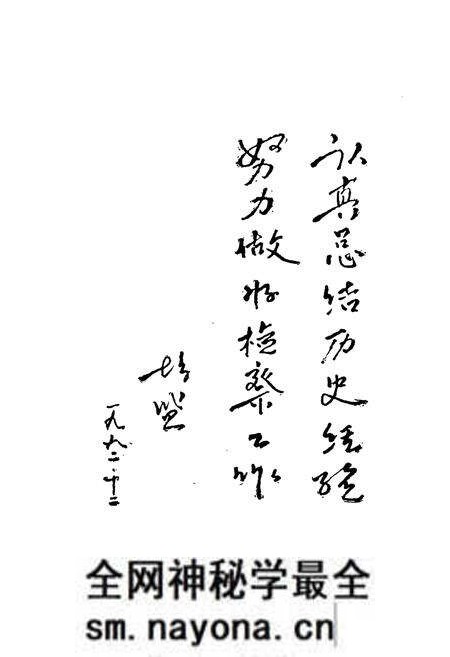 认真总结历史经验
努力做好检察工作
培
一九九二·十二
全网神秘学最全
sm.nayona.cn